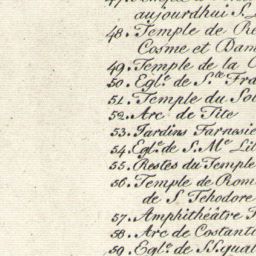 aujourdhui S.
48. Temple de Re
Cosme et Dam
49. Temple de la C
50. Egl.e de S.te Fra
51. Temple du Sol
52. Arc de Tite
53. Jardins Farnasie
54. Egl.e de S. M.e Lib
55. Restes du Temple
56. Temple de Rom
de S. Tehodore
57. Amphithéâtre F
58. Arc de Costanti
59. Egl.e de S.S. quat